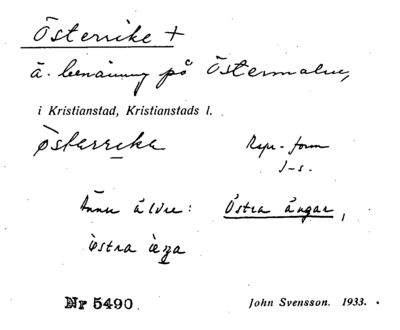 Österrike +
ä. benämning på Östermalm,
i Kristianstad, Kristianstads l.
østarrika
Repr-form
J-s.
Ännu äldre: Östra ängar,
østra æŋa
Nr 5490
John Svensson. 1933.